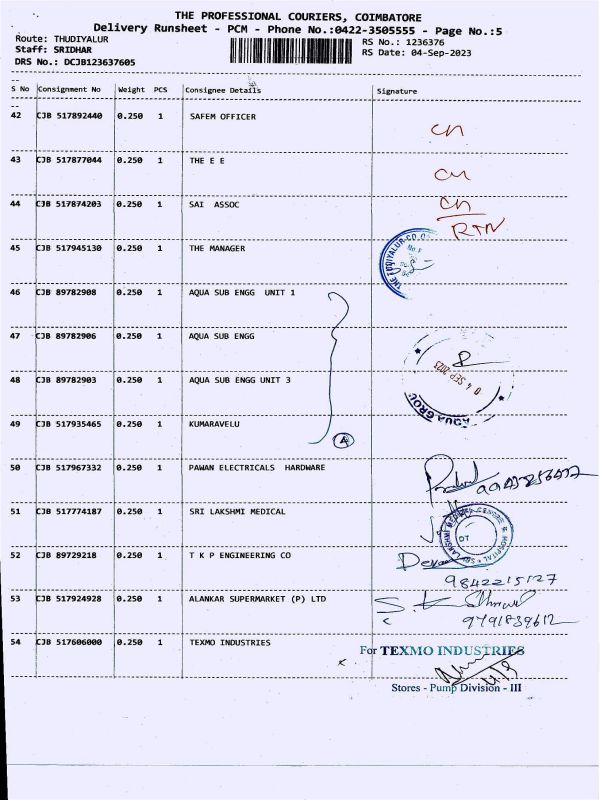 THE PROFESSIONAL COURIERS, COIMBATORE
Delivery Runsheet - PCM - Phone No.:0422-3505555 - Page No.:5
Route: THUDIYALUR
RS No.: 1236376
Staff: SRIDHAR
RS Date: 04-Sep-2023
DRS No.: DCJB123637605
S No Consignment No Weight PCS Consignee Details Signature
42 CJB 517892440 0.250 1 SAFEM OFFICER
43 CJB 517877044 0.250 1 THE E E
44 CJB 517874203 0.250 1 SAI ASSOC
RTN
45 CJB 517945130 0.250 1 THE MANAGER
46 CJB 89782908 0.250 1 AQUA SUB ENGG UNIT 1
47 CJB 89782906 0.250 1 AQUA SUB ENGG
8
04 SEP 2023
48 CJB 89782903 0.250 1 AQUA SUB ENGG UNIT 3
49 CJB 517935465 0.250 1 KUMARAVELU
A
50 CJB 517967332 0.250 1 PAWAN ELECTRICALS HARDWARE
51 CJB 517774187 0.250 1 SRI LAKSHMI MEDICAL
52 CJB 89729218 0.250 1 T K P ENGINEERING CO
9842215127
53 CJB 517924928 0.250 1 ALANKAR SUPERMARKET (P) LTD
9791839612
54 CJB 517606000 0.250 1 TEXMO INDUSTRIES
For TEXMO INDUSTRIES
4/9
Stores - Pump Division - III